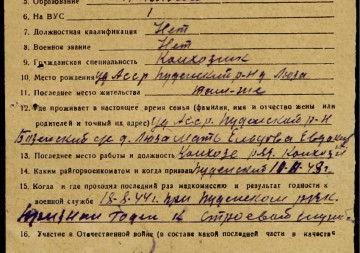 5. Образование
6. На ВУС 1
7. Должностная квалификация Нет
8. Военное звание Нет
9. Гражданская специальность Колхозник
10. Место рождения Уд. Асср. Пудемский р-н д. Лоза
11. Последнее место жительства Там-же
12. Где проживает в настоящее время семья (фамилия, имя и отчество жены или
родителей и точный их адрес) Уд. Асср. Пудемский р-н
с/с д. Лоза Мать Ельцова Евдокия
13. Последнее место работы и должность Колхозе ряд. Колхозн
14. Каким райгорвоенкоматом и когда призван Пудемский
15. Когда и где проходил последний раз медкомиссию и результат годности к
военной службе 18-8.44 г. при Пудемском РВК.
признан годен к строевой службе
16. Участие в Отечественной войне (в составе какой последней части в качеств